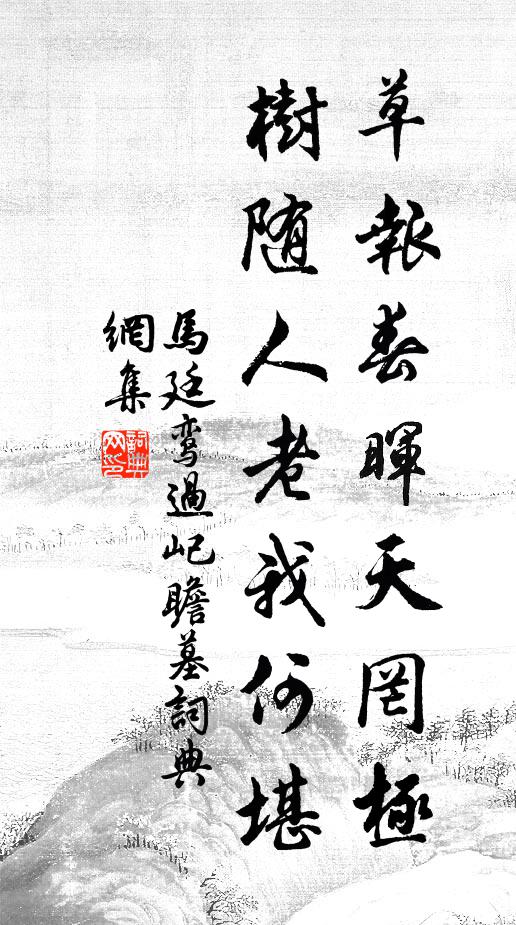 草報春暉天罔極
樹随人老我何堪
馬廷鸾過屺瞻墓詞典
網集
詞典网印